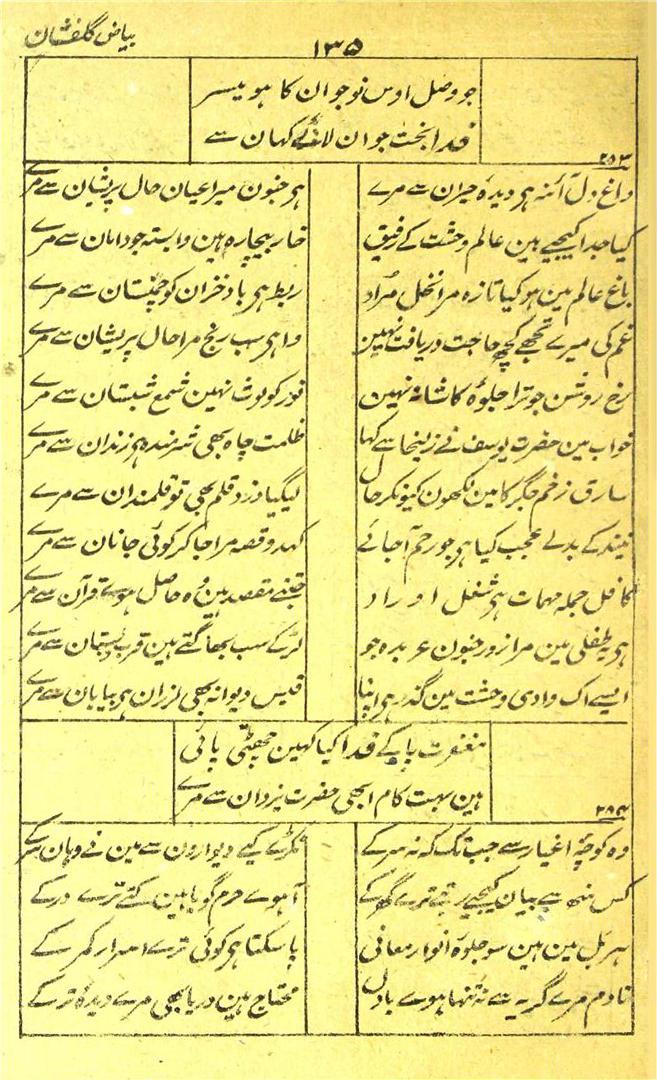 بیاض گلفشان
۱۳۵
جو وصل اوس نوجوان کا ہو میسر
فدا بخت جوان لائے کہان سے
۲۵۳
داغ دل آئنہ ہی دیدۂ حیران سے مرے
ہی جنون میرا عیان حال پریشان سے مرے
کیا جدا کیجیے ہین عالم وحشت کے رفیق
خار بیچارہ ہین وابستہ جو دامان سے مرے
باغ عالم مین ہو کیا تازہ مرا نخل مراد
ربط ہی باد خزان کو چمنستان سے مرے
غم کی میرے تجھے کچھ حاجت دریافت نہین
وا ہی سب رنج مرا حال پریشان سے مرے
رخ روشن جو ترا جلوۂ کاشانہ نہین
نور کو لوث نہین شمع شبستان سے مرے
خواب مین حضرت یوسف نے زلیخا سے کہا
ظلمت چاہ بھی شرمندہ ہی زندان سے مرے
سارق زخم جگر کا مین لکھون کیونکر حال
لیگیا دزد قلم بھی تو قلمدان سے مرے
نیند کے بدلے عجب کیا ہی جو رحم آجائے
کہدو قصہ مرا جا کر کوئی جانان سے مرے
کافل جملہ مہمات ہی شغل اوراد
جتنے مقصد ہین وہ حاصل ہوے قرآن سے مرے
ہی یہ طفلی مین مرا زور جنون عربدہ جو
لڑکے سب بھاگتے ہین قرب دبستان سے مرے
ایسے اک وادی وحشت مین گذر ہی اپنا
قیس دیوانہ بھی لرزان ہی بیابان سے مرے
مغفرت پاکے فدا کیا کہین چھٹی پائی
ہین بہت کام ابھی حضرت یزدان سے مرے
۲۵۴
وہ کوچۂ اغیار سے جب تک کہ نہ سرکے
ٹکڑے کیے دیوارون سے مین نے وہان سر کے
کس منھ سے بیان کیجیے رتبے ترے گھر کے
آہوے حرم گویا ہین کتے ترے در کے
ہر بل مین ہین سو جلوۂ انوار معانی
پا سکتا ہی کوئی ترے اسرار کمر کے
نادم مرے گریہ سے نہ تنہا ہوے بادل
محتاج ہین دریا بھی مرے دیدۂ تر کے